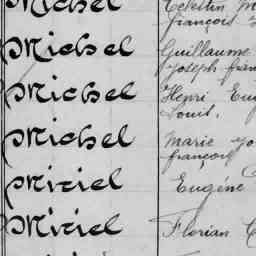 Michel Célestin
françois
Michel Guillaume
Joseph fran
Michel Henri Eug
Louis.
Michel Marie Jo
françois
Miriel Eugène
Miriel Florian C